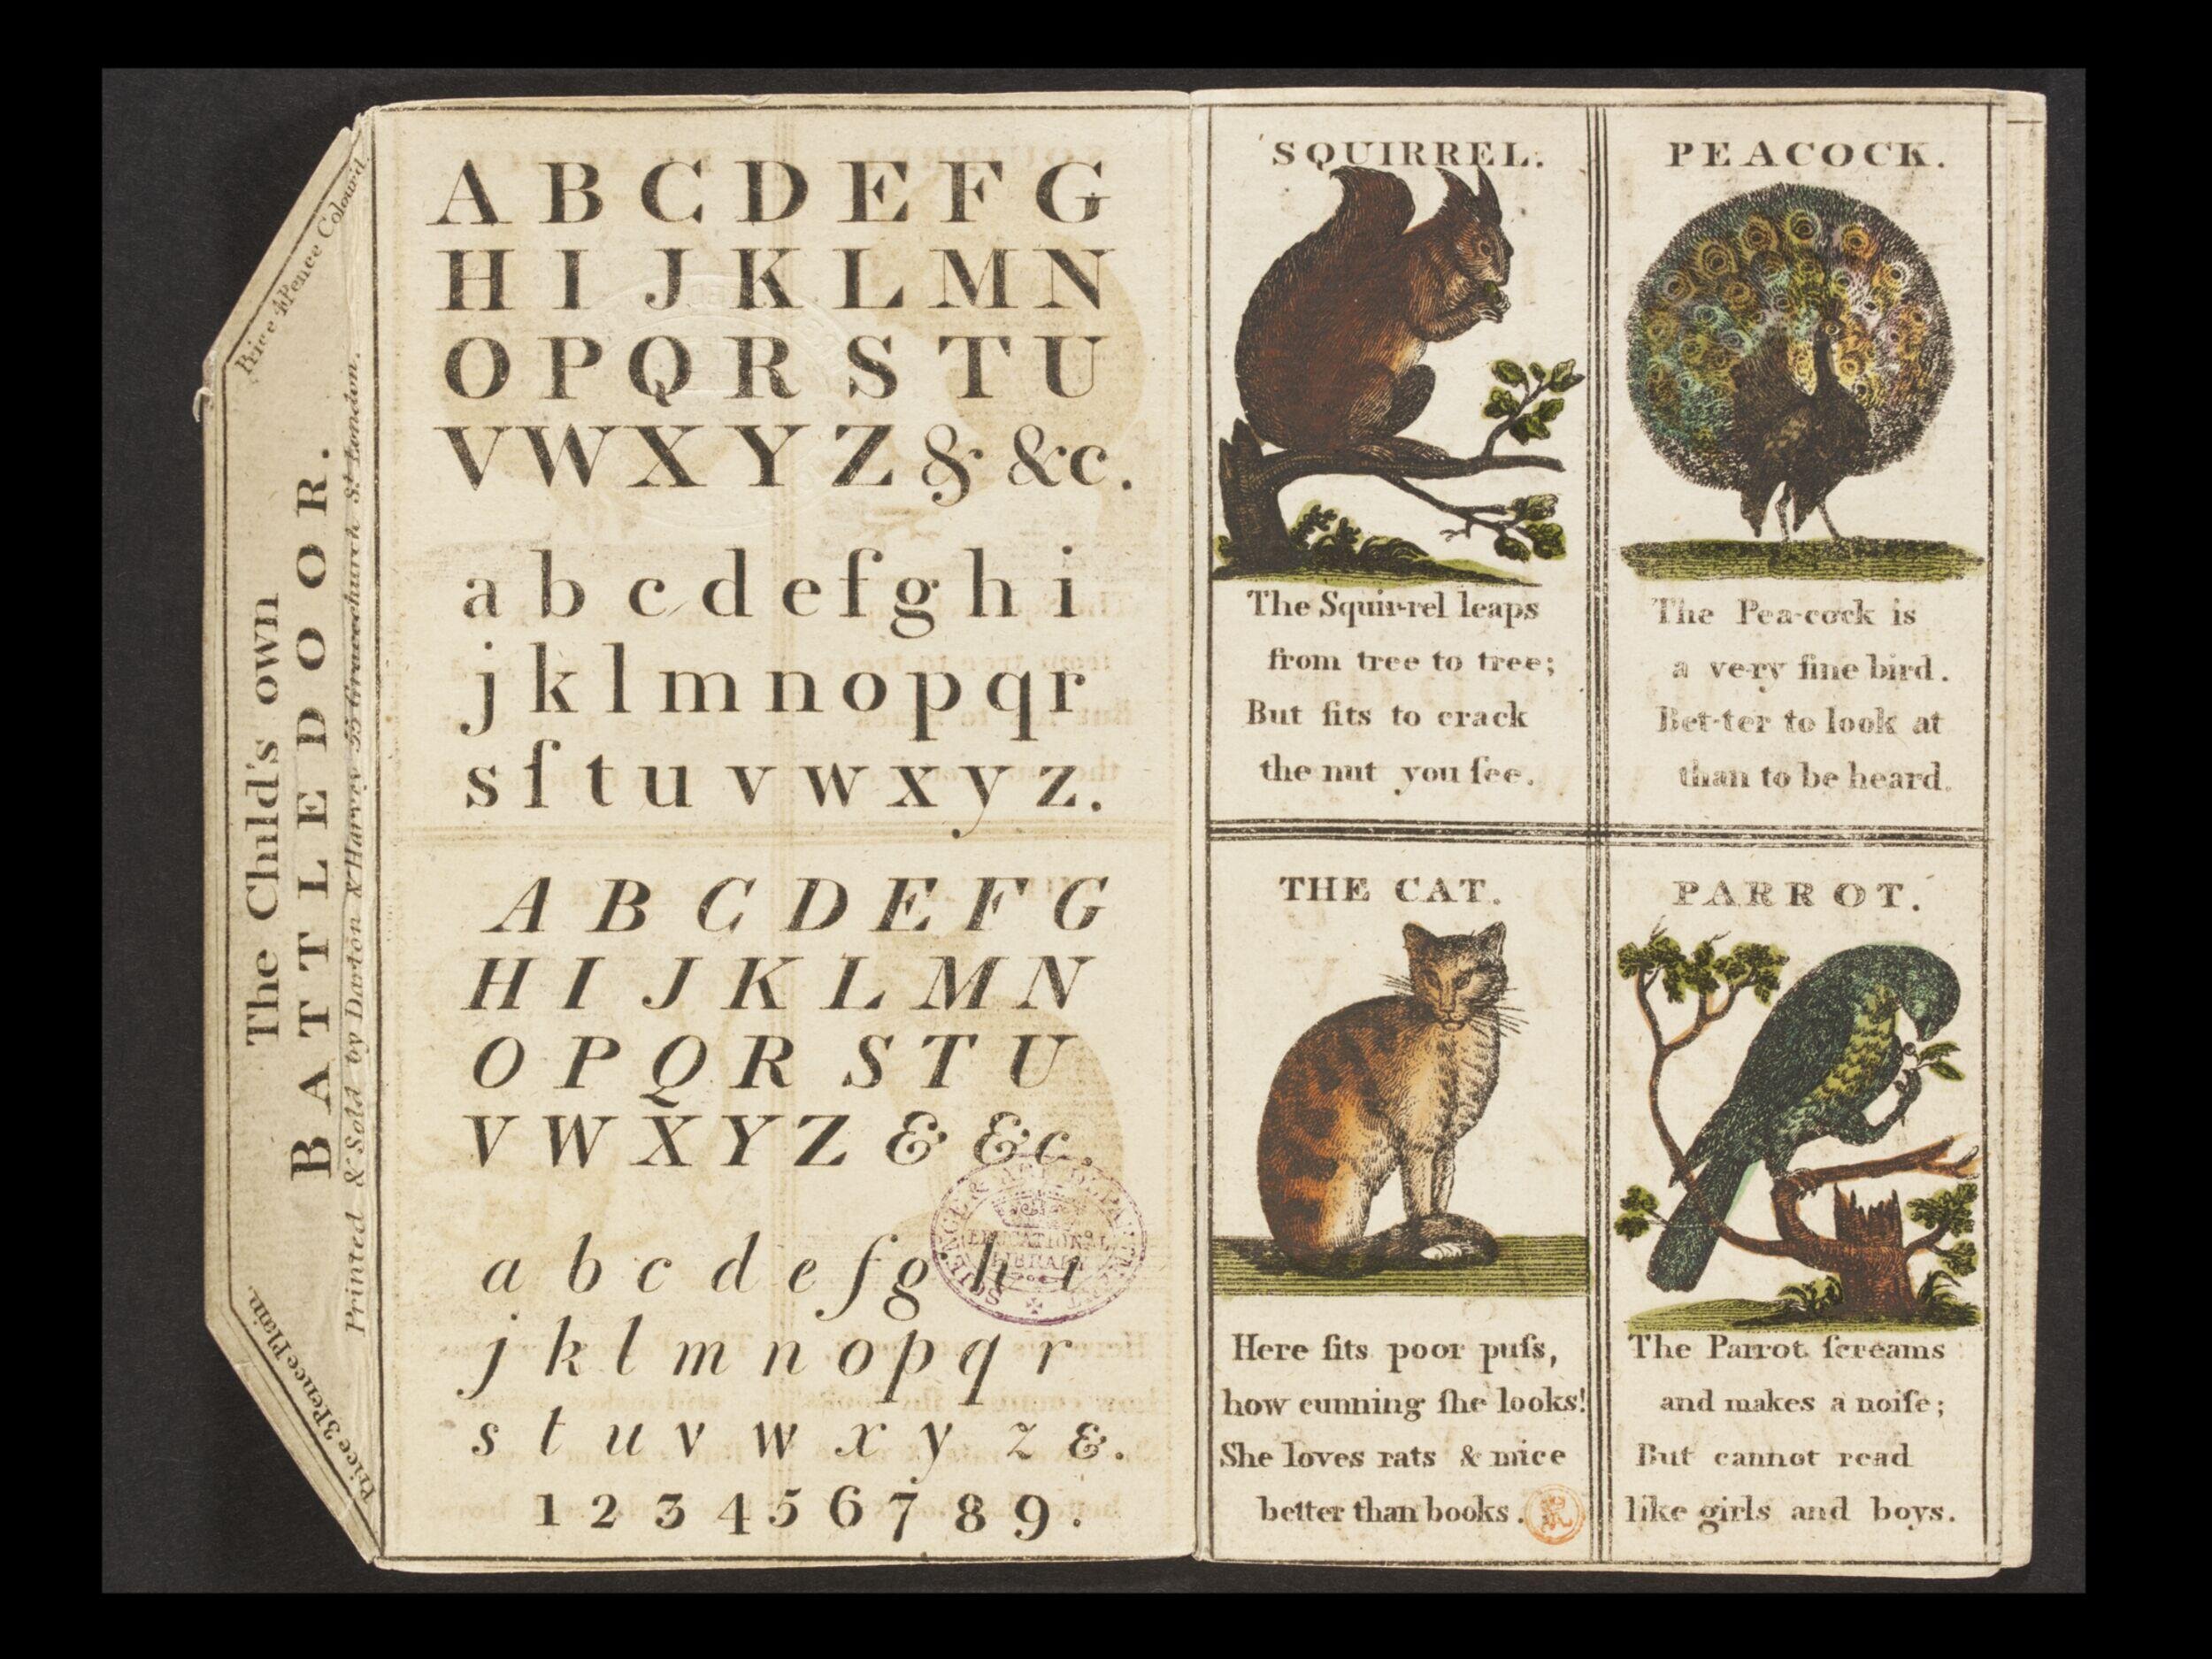 Price 4 Pence Colour'd.
The Child's own
BATTLEDOOR.
Printed & Sold by Darton & Harvey 55 Gracechurch St. London.
Price 3 Pence Plain.
A B C D E F G
H I J K L M N
O P Q R S T U
V W X Y Z & &c.
a b c d e f g h i
j k l m n o p q r
s ſ t u v w x y z.
A B C D E F G
H I J K L M N
O P Q R S T U
V W X Y Z & &c.
a b c d e f g h i
j k l m n o p q r
s t u v w x y z &.
1 2 3 4 5 6 7 8 9.
SCIENCE & ART DEPARTMENT
EDUCATIONAL
LIBRARY
SQUIRREL.
The Squir-rel leaps
from tree to tree;
But ſits to crack
the nut you ſee.
PEACOCK.
The Pea-cock is
a ve-ry fine bird.
Bet-ter to look at
than to be heard.
THE CAT.
Here ſits poor puſs,
how cunning ſhe looks!
She loves rats & mice
better than books.
PARROT.
The Parrot ſcreams
and makes a noiſe;
But cannot read
like girls and boys.